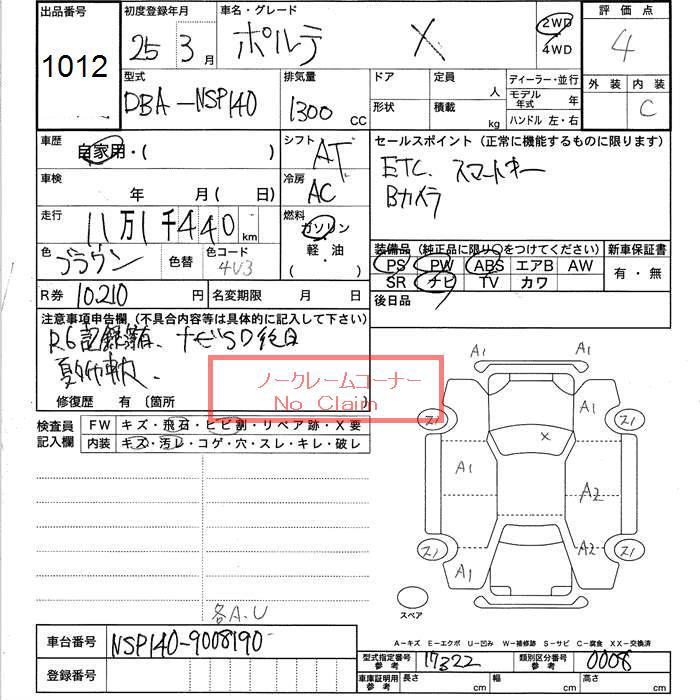 出品番号 1012
初度登録年月 25 3月
車名・グレード ポルテ X
2WD
4WD
評価点 4
外装 内装 C
型式 DBA-NSP140
排気量 1300 CC
ドア
形状
定員 人
積載 kg
ディーラー・並行
モデル年式 年
ハンドル 左・右
車歴 自家用・( )
シフト AT
車検 年 月( 日)
冷房 AC
走行 11万1千440 km
燃料 ガソリン・軽・油・( )
セールスポイント(正常に機能するものに限ります)
ETC. スマートキー
Bカメラ
色 ブラウン 色替 色コード 4V3
装備品(純正品に限り○をつけてください)
PS PW ABS エアB AW
SR ナビ TV カワ
新車保証書
有・無
R券 10,210 円
名変期限 月 日
後日品
注意事項申告欄(不具合内容等は具体的に記入して下さい)
R.6記録簿有、ナビSD後日
修復歴 有 〔箇所 〕
ノークレームコーナー
No Claim
検査員記入欄
FW キズ・飛石・ヒビ割・リペア跡・X要
内装 キズ・汚レ・コゲ・穴・スレ・キレ・破レ
A1 A1
A1
X
A1
A2
A2
A1
スペア
各A.U
車台番号 NSP140-9008190
登録番号
A-キズ E-エクボ U-凹み W-補修跡 S-サビ C-腐食 XX-交換済
型式指定番号参考 17322
類別区分番号参考 0008
車庫証明用参考 長さ cm 幅 cm 高さ cm